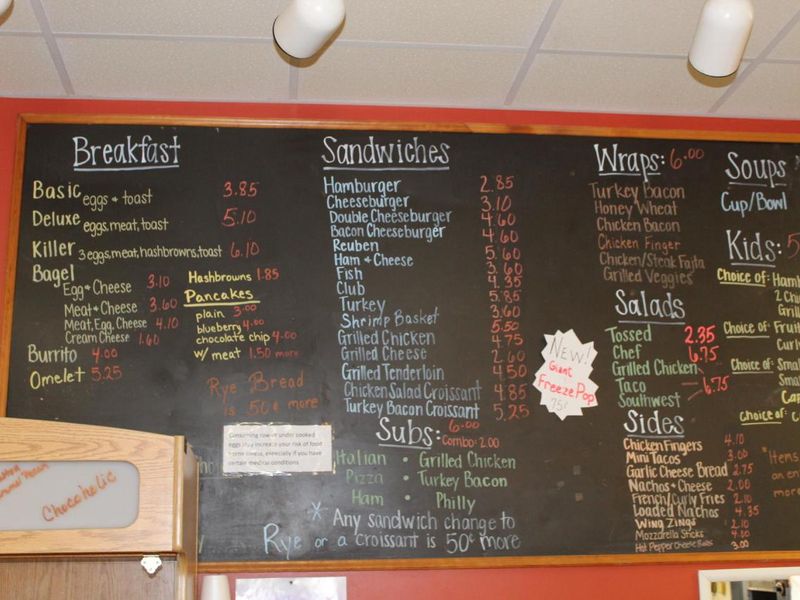 Breakfast
Basic eggs + toast 3.85
Deluxe eggs, meat, toast 5.10
Killer 3 eggs, meat, hashbrowns, toast 6.10
Bagel
Egg + Cheese 3.10
Meat + Cheese 3.60
Meat, Egg, Cheese 4.10
Cream Cheese 1.60
Burrito 4.00
Omelet 5.25
Hashbrowns 1.85
Pancakes
plain 3.00
blueberry 4.00
chocolate chip 4.00
w/ meat 1.50 more
Rye Bread
is 50¢ more
Consuming raw or under cooked
eggs may increase your risk of food
borne illness, especially if you have
certain medical conditions
Chocoholic
Sandwiches
Hamburger 2.85
Cheeseburger 3.10
Double Cheeseburger 4.60
Bacon Cheeseburger 4.60
Reuben 5.60
Ham + Cheese 3.60
Fish 4.35
Club 5.85
Turkey 3.60
Shrimp Basket 5.50
Grilled Chicken 4.75
Grilled Cheese 2.60
Grilled Tenderloin 4.50
Chicken Salad Croissant 4.85
Turkey Bacon Croissant 5.25
Subs: 6.00
Combo: 2.00
Italian • Grilled Chicken
Pizza • Turkey Bacon
Ham • Philly
* Any sandwich change to
Rye or a croissant is 50¢ more
NEW!
Giant
Freeze Pop
75¢
Wraps: 6.00
Turkey Bacon
Honey Wheat
Chicken Bacon
Chicken Finger
Chicken/Steak Fajita
Grilled Veggies
Salads
Tossed 2.35
Chef 6.75
Grilled Chicken
Taco 6.75
Southwest
Sides
Chicken Fingers 4.10
Mini Tacos 3.00
Garlic Cheese Bread 2.75
Nachos + Cheese 2.00
French/Curly Fries 2.10
Loaded Nachos 4.35
Wing Zings 2.10
Mozzarella Sticks 4.00
Hot Pepper Cheese Balls 3.00
Soups
Cup/Bowl
Kids: 5
Choice of: Haml
2 Chi
Gril
Choice of: Fruit
Curly
Choice of: Smal
Smal
Cap
Choice of: C
*Items
on en
more